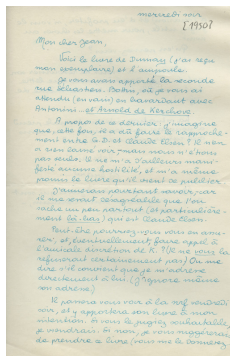 mercredi soir
[1950]
Mon cher Jean,
Voici le livre de Dummy (j'ai reçu
mon exemplaire) et l'ampoule.
Je vous avais apporté la seconde
rue Sébastien Bottin, où je vous ai
attendu (en vain) en bavardant avec
Antonini... et Arnold de Kerchove
A propos de ce dernier : j'imagine
que, cette fois, il a dû faire le rapproche-
ment entre le D. et Claude Elsen! Il m'en
a rien laissé voir mais nous n'étions
pas seuls. Il ne m'a d'ailleurs mani-
festé aucune hostilité, et m'a même
promis le livre qu'il vient de publier
J'aimerais pourtant savoir par
il me serait désagréable que l'on
sache un peu partout (et particulière-
ment là-bas) qui est Claude Elsen.
Peut-être pourriez-vous vous en assu-
rer, et, éventuellement, faire appel à
l'amicale discrétion de K. ? (Il ne vous la
refuserait certainement pas) Ou me
dire s'il convient que je m'adresse
directement à lui. (J'ignore même
son adresse)
Il passera vous voir à la nrf vendredi
soir, et y apportera son livre à mon
intention. Si vous le jugez souhaitable,
je viendrai. Si non, je vous suggérerais
de prendre ce livre (vous me le donnerez,